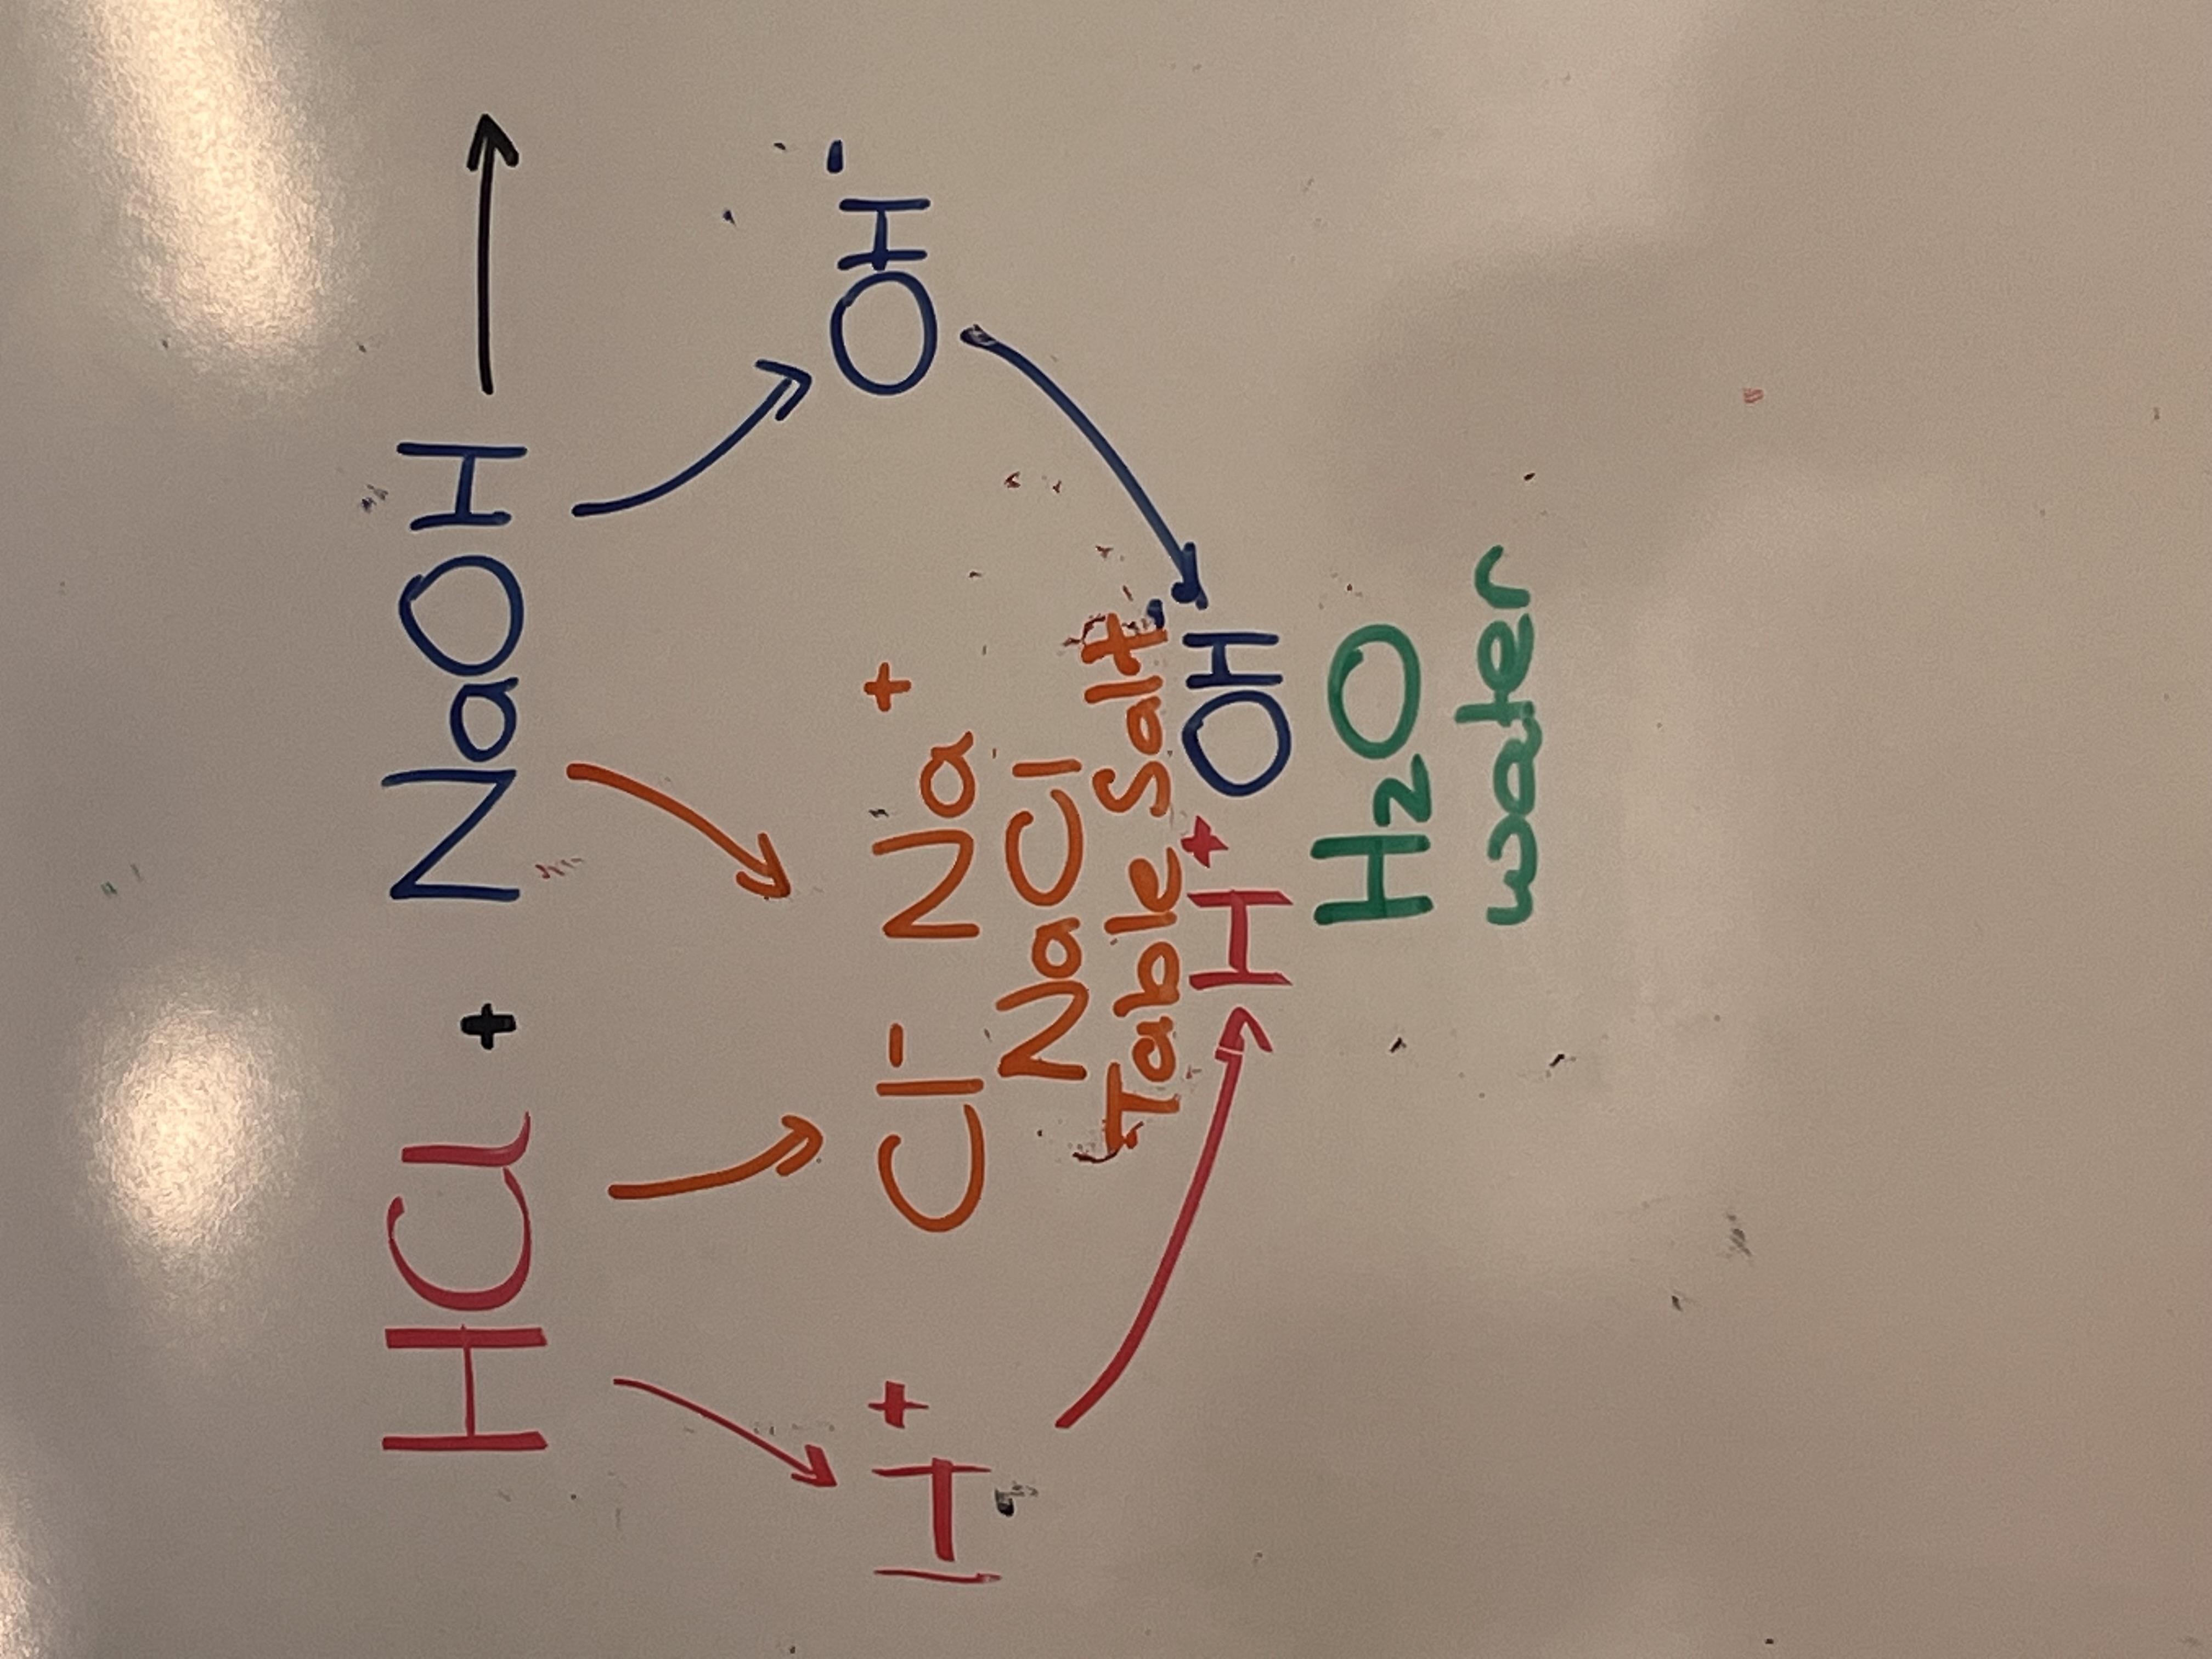 HCl + NaOH →
H⁺ Cl⁻ Na⁺ OH⁻
NaCl
Table Salt
H⁺ OH⁻
H₂O
water